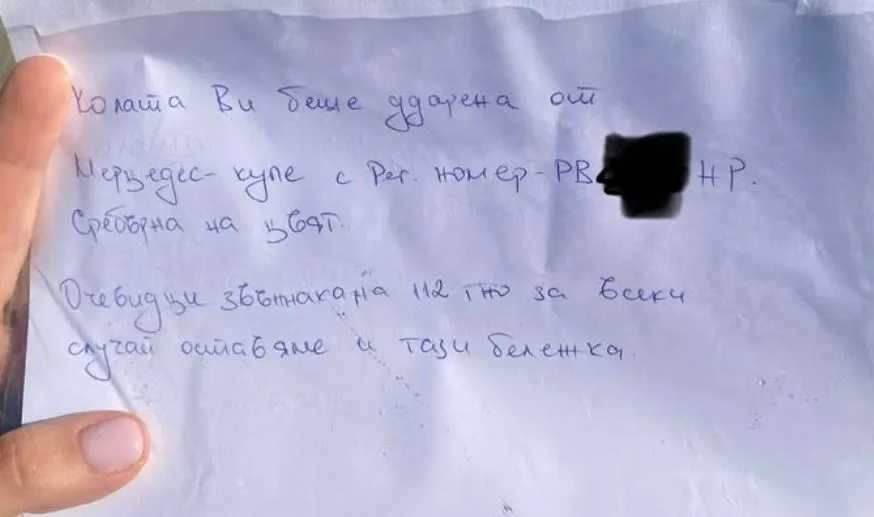 Колата Ви беше ударена от
Мерцедес-купе с Рег. номер-РВ НР.
Сребърна на цвят.
Очевидци звъннаха на 112 но за всеки
случай оставяме и тази бележка.